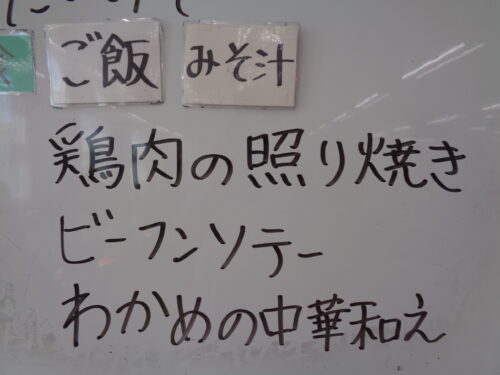 ご飯 みそ汁
鶏肉の照り焼き
ビーフンソテー
わかめの中華和え